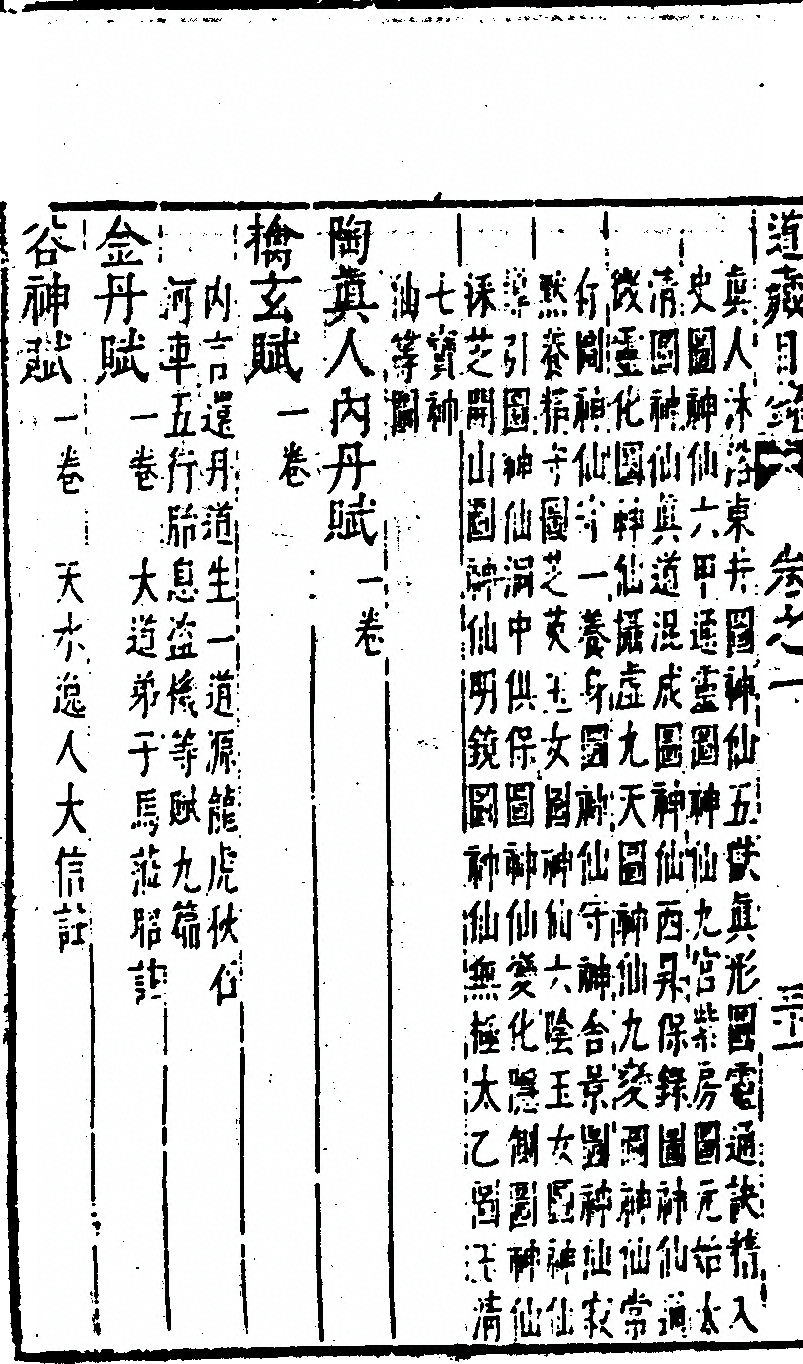 道藏目錄 卷之一 三十一
真人沐浴東井圖神仙五嶽真形圖靈通訣精入
史圖神仙六甲通靈圖神仙九宮紫房圖元始太
清圖神仙真道混成圖神仙西昇保錄圖神仙通
微靈化圖神仙攝虛九天圖神仙九變圖神仙常
存圖神仙守一養身圖神仙守神舍景圖神仙寂
默養精守圖芝英玉女圖神仙六陰玉女圖神仙
導引圖神仙涓中供保圖神仙變化隱側圖神仙
採芝開山圖神仙明鏡圖神仙無極太乙圖玉清
七寶神
仙等圖
陶真人內丹賦 一卷
擒玄賦 一卷
內言還丹道生一道源龍虎伏
河車五行胎息盜機等賦九篇
金丹賦 一卷 大道弟子馬蒞昭註
谷神賦 一卷 天水逸人大信註